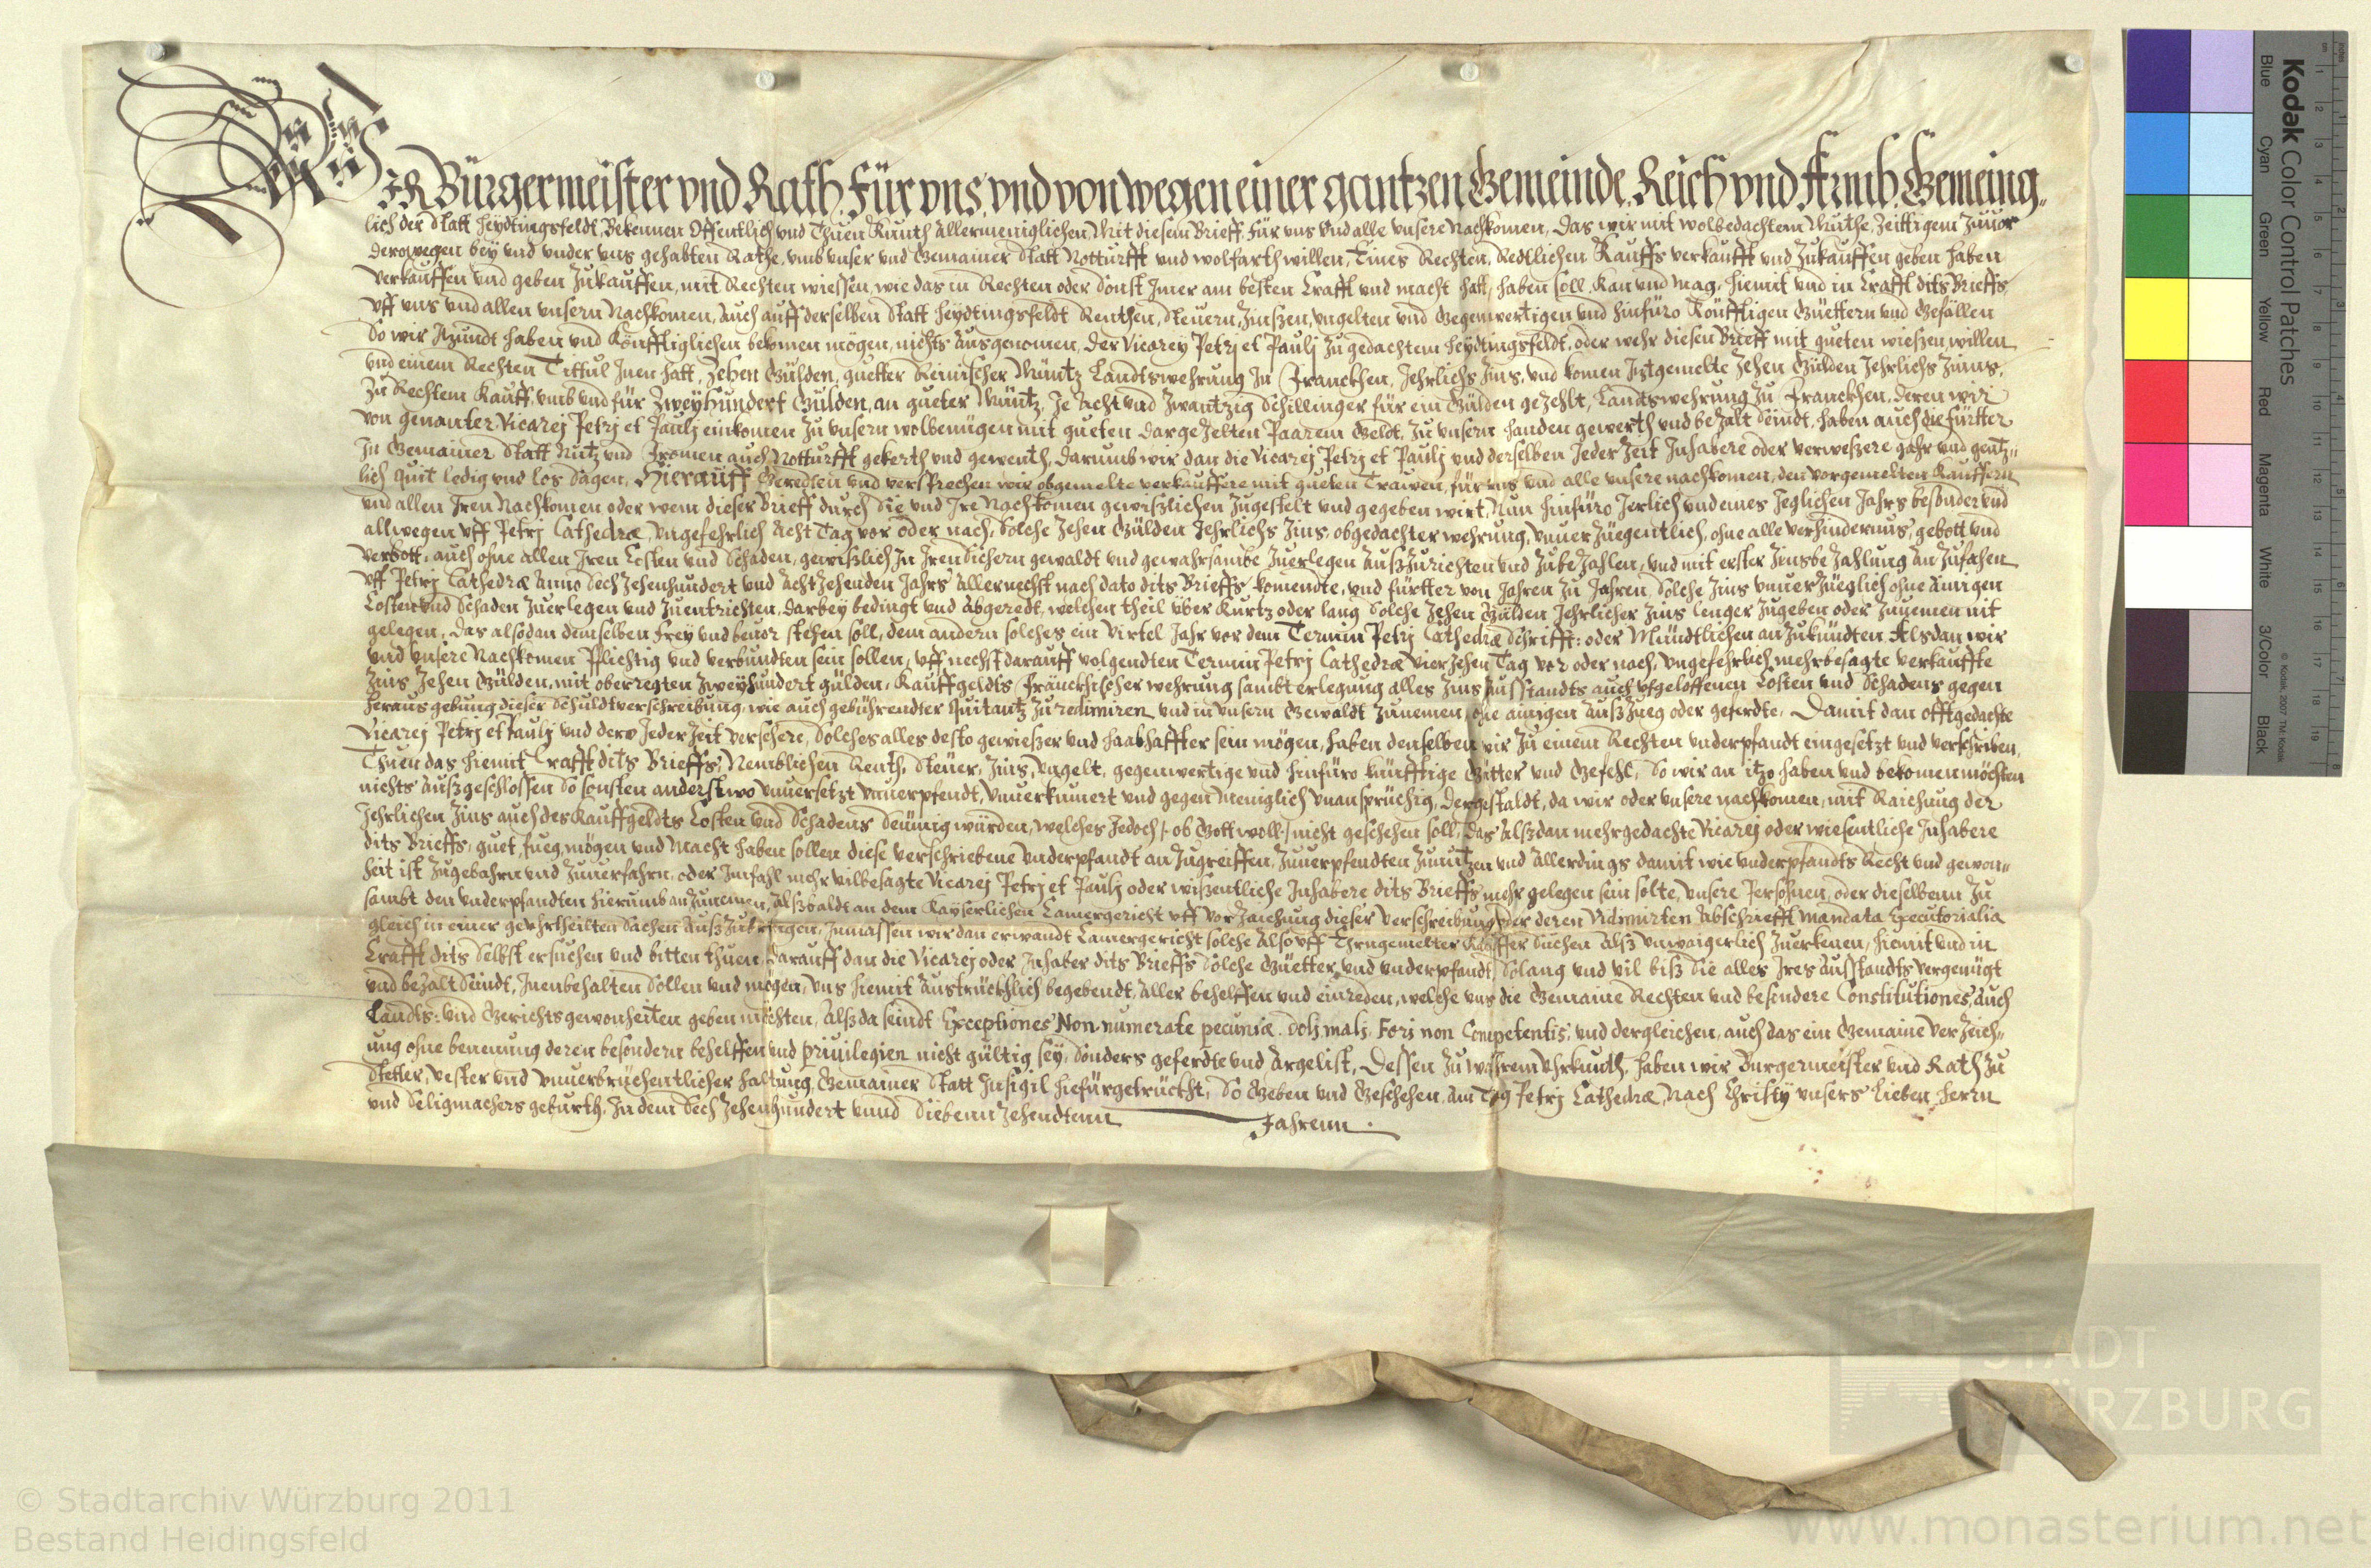 WIR Bürgermeister vnd Rath, Für vns, vnd von wegen einer gantzen Gemeinde, Reich vnd Armb, Gemeing„
lich der Statt Heydtingsfeldt, Bekennen Offentlich vnd Thuen Kunth Allermeniglichen, Mit diesem Brieff, für vns vnd alle vnsere Nachkomen, Das wir mit wolbedachtem Muthe, Zeittigem Zuuor
derowegen bey vnd vnder vns gehabten Rathe, vmb vnser vnd Gemainer Statt Notturfft vnd wolfarth willen, Eines Rechten, Redtlichen Kauffs verkaufft vnd Zukauffen geben haben
verkauffen vnd geben Zukauffen, mit Rechten wiessen, wie das in Rechten oder Sonst Jmer am besten Crafft vnd macht hatt, haben soll, Kan vnd mag, hiemit vnd in Crafft dits Brieffs
vff vns vnd allen vnsern Nachkomen, Auch auff derselben Statt Heydtingsfeldt Renthen, Steuern, Zinszen, vngelten vnd Gegenwertigen vnd hinfüro Könfftigen Güettern vnd Gefällen
So wir Azundt haben vnd Könfftiglichen bekomen mögen, nichts Ausgenomen, Der Vicarey Petrj et Paulj zu gedachtem Heydtingsfeldt, oder wehr diesen Brieff mit gueten wieszen, willen
vnd einem Rechten Tittul Jnen hatt, Zehen Gülden, guetter Reinischer Müntz Landtswehrung Zu Franckhen, Jehrlichs Zins, vnd komen Jtztgemelte Zehen Gülden Jehrlichs Zinns,
Zu Rechtem Kauff, vmb vnd für Zweyhundert Gülden, an gueter Müntz, Je Acht vnd Zwantzig Schillinger für ein Gülden gezehlt, Landtswehrung zu Franckhen, Deren wir
von genanter Vicarej Petrj et Paulj einkomen zu vnsern wolbenügen mit gueten dargezelten Paarem Geldt, zu vnsern handen gewerth vnd bezalt seindt, haben auch die fürtter
Jn Gemainer Statt Nutz vnd Fromen auch Notturfft gekerth vnd gewenth, darumb wir dan die Vicarej Petrj et Paulj vnd derselben Jeder Zeit Jnhabere oder verweszere gahr vnd gentz„
lich quit ledig vnd los Sagen, Hierauff Geredten vnd versprechen wir obgemelte verkauffere mit gueten Trawen, für vns vnd alle vnsere nachkomen, den vorgemelten Kauffern
vnd allen Jren Nachkomen oder wem dieser Brieff durch Sie vnd Jre Nachkomen gewiszlichen Zugestelt vnd gegeben wirt, Nun hinfüro Jerlich vnd eines Jeglichen Jahrs besonder vnd
allwegen vff Petrj Cathedræ, vngefehrlich Acht Tag vor oder nach, Solche Zehen Gülden Jehrlichs Zins, obgedachter wehrung, vnuerzüegentlich, ohne alle verhindernus, gebott vnd
verbott, auch ohne allen Jren Costen vnd Schaden, gewiszlich Jn Jren Sichern gewaldt vnd gewahrsambe Zuerlegen Auszzurichten vnd Zubezahlen, vnd mit erster Zinsbezahlung Anzufahen
vff Petrj Cathedræ Anno Sechzehenhundert vnd Achtzehenden Jahrs Allernechst nach dato dits Brieffs komendte, vnd fürtter von Jahren zu Jahren, Solche Zins vnuerzüeglich ohne Ainigen
Costen vnd Schaden Zuerlegen vnd Zuentrichten, Darbey bedingt vnd Abgeredt, welchen theil vber Kurtz oder lang Solche Zehen Gülden Jehrlicher Zins lenger Zugeben oder Zunemen nit
gelegen, Das alsodan demselben frey vnd beuor stehen soll, dem andern solches ein Virtel Jahr vor dem Termin Petrj Cathedræ Schrifft: oder Mündtlichen anzukündten, Alsdan wir
vnd vnsere Nachkomen Pflichtig vnd verbundten sein sollen, vff nechst darauff volgendten Termin Petrj Cathedræ vierzehen Tag vor oder nach, vngefehrlich, mehrbesagte verkauffte
Zins Zehen Gülden, mit oberregten Zweyhundert gülden, Kauffgeldts Fränckischer wehrung sambt erlegung alles Zins Ausstandts auch vfgeloffenen Costen vnd Schadens gegen
heraus gebung dieser Schuldtverschreibung, wie auch gebührendter Quitantz Zu redimiren vnd in vnsern Gewaldt Zunemen, ohne ainigen Auszzueg oder geferdte, Damit dan offtgedachte
Vicarej Petrj et Paulj vnd dero Jeder Zeit versehere, Solches alles desto gewieszer vnd haabhaffter sein mögen, haben denselben wir zu einem Rechten vnderpfandt eingesetzt vnd verschriben,
Thuen das hiemit Crafft dits Brieffs, Nemblichen Renth, Steuer, Zins, vngelt, gegenwertige vnd hinfüro künfftige Gütter vnd Gefehl, So wir an itzo haben vnd bekomen möchten
nichts Auszgeschlossen So sonsten anderstwo vnuersetzt vnuerpfendt, vnuerkumert vnd gegen Meniglich vnansprüchig, Dergestaldt, da wir oder vnsere nachkomen, mit Raichung der
Jehrlichen Zins auch des Kauffgeldts Costen vnd Schadens Seümig würden, welches Jedoch, ob Gott woll, nicht geschehen soll, Das Alszdan mehrgedachte Vicarej oder wiesentliche Jnhabere
dits Brieffs, guet, fueg, mögen vnd Macht haben sollen diese verschriebene vnderpfandt anzugreiffen, Zuuerpfendten Zunutzen vnd Allerdings damit wie vnderpfandts Recht vnd gewon„
heit ist Zugebahrn vnd Zuuerfahrn, oder Jmfahl mehr vilbesagte Vicarej Petrj et Paulj oder wiszentliche Jnhabere dits Brieffs mehr gelegen sein solte, vnsere Persohnen, oder dieselbenn zu
sambt den vnderpfandten hierumb anzunemen, Alszbaldt an dem Kayserlichen Camergericht vff vorzaichung dieser verschreibung oder deren Vidimirten Abschriefft Mandata Executorialia
gleich in einer geuhrtheilten Sachen Auszzubringen, Jnmassen wir dan erwandt Camergericht solche Also vff Jhrngemelter Kauffer Suchen Alsz vnwaigerlich Zuerkenen, hiemit vnd in
Crafft dits Selbst ersuchen vnd bitten thuen, darauff dan die Vicarej oder Jnhaber dits Brieffs Solche Güetter vnd vnderpfandt Solang vnd vil bisz Sie alles Jres Ausstandts vergenügt
vnd bezalt Seindt, Jnenbehalten Sollen vnd mögen, vns hiemit Austrückhlich begebendt, Aller behelffen vnd einreden, welche vns die Gemaine Rechten vnd besondere Constitutiones, Auch
Landts: vnd Gerichtsgewonheiten geben möchten, Alsz da seindt Exceptiones Non numeratæ pecuniæ, Dolj malj, Forj non Competentis, vnd dergleichen, auch das ein Gemaine verzeich„
ung ohne benenung deren besondern behelffen vnd priuilegien nicht gültig sey, Sonders geferdte vnd Argelist, Dessen Zu wahrem Vhrkunth, haben wir Burgermeister vnd Rath Zu
Stetter, vester vnd vnuerbrüchentlicher haltung, Gemainer Statt Jnsigil hiefürgetrückht, So Geben vnd Geschehen, Am Tag Petrj Cathedræ, Nach Christy vnsers Lieben Herrn
vnd Seligmachers geburth, Jn dem Sechzehenhundert vnnd Siebennzehendtenn Jahrenn.
Kodak Color Control Patches
Blue Cyan Green Yellow Red Magenta White 3/Color Black
© Kodak, 2007 TM: Kodak
STADT
WÜRZBURG
© Stadtarchiv Würzburg 2011
Bestand Heidingsfeld
www.monasterium.net